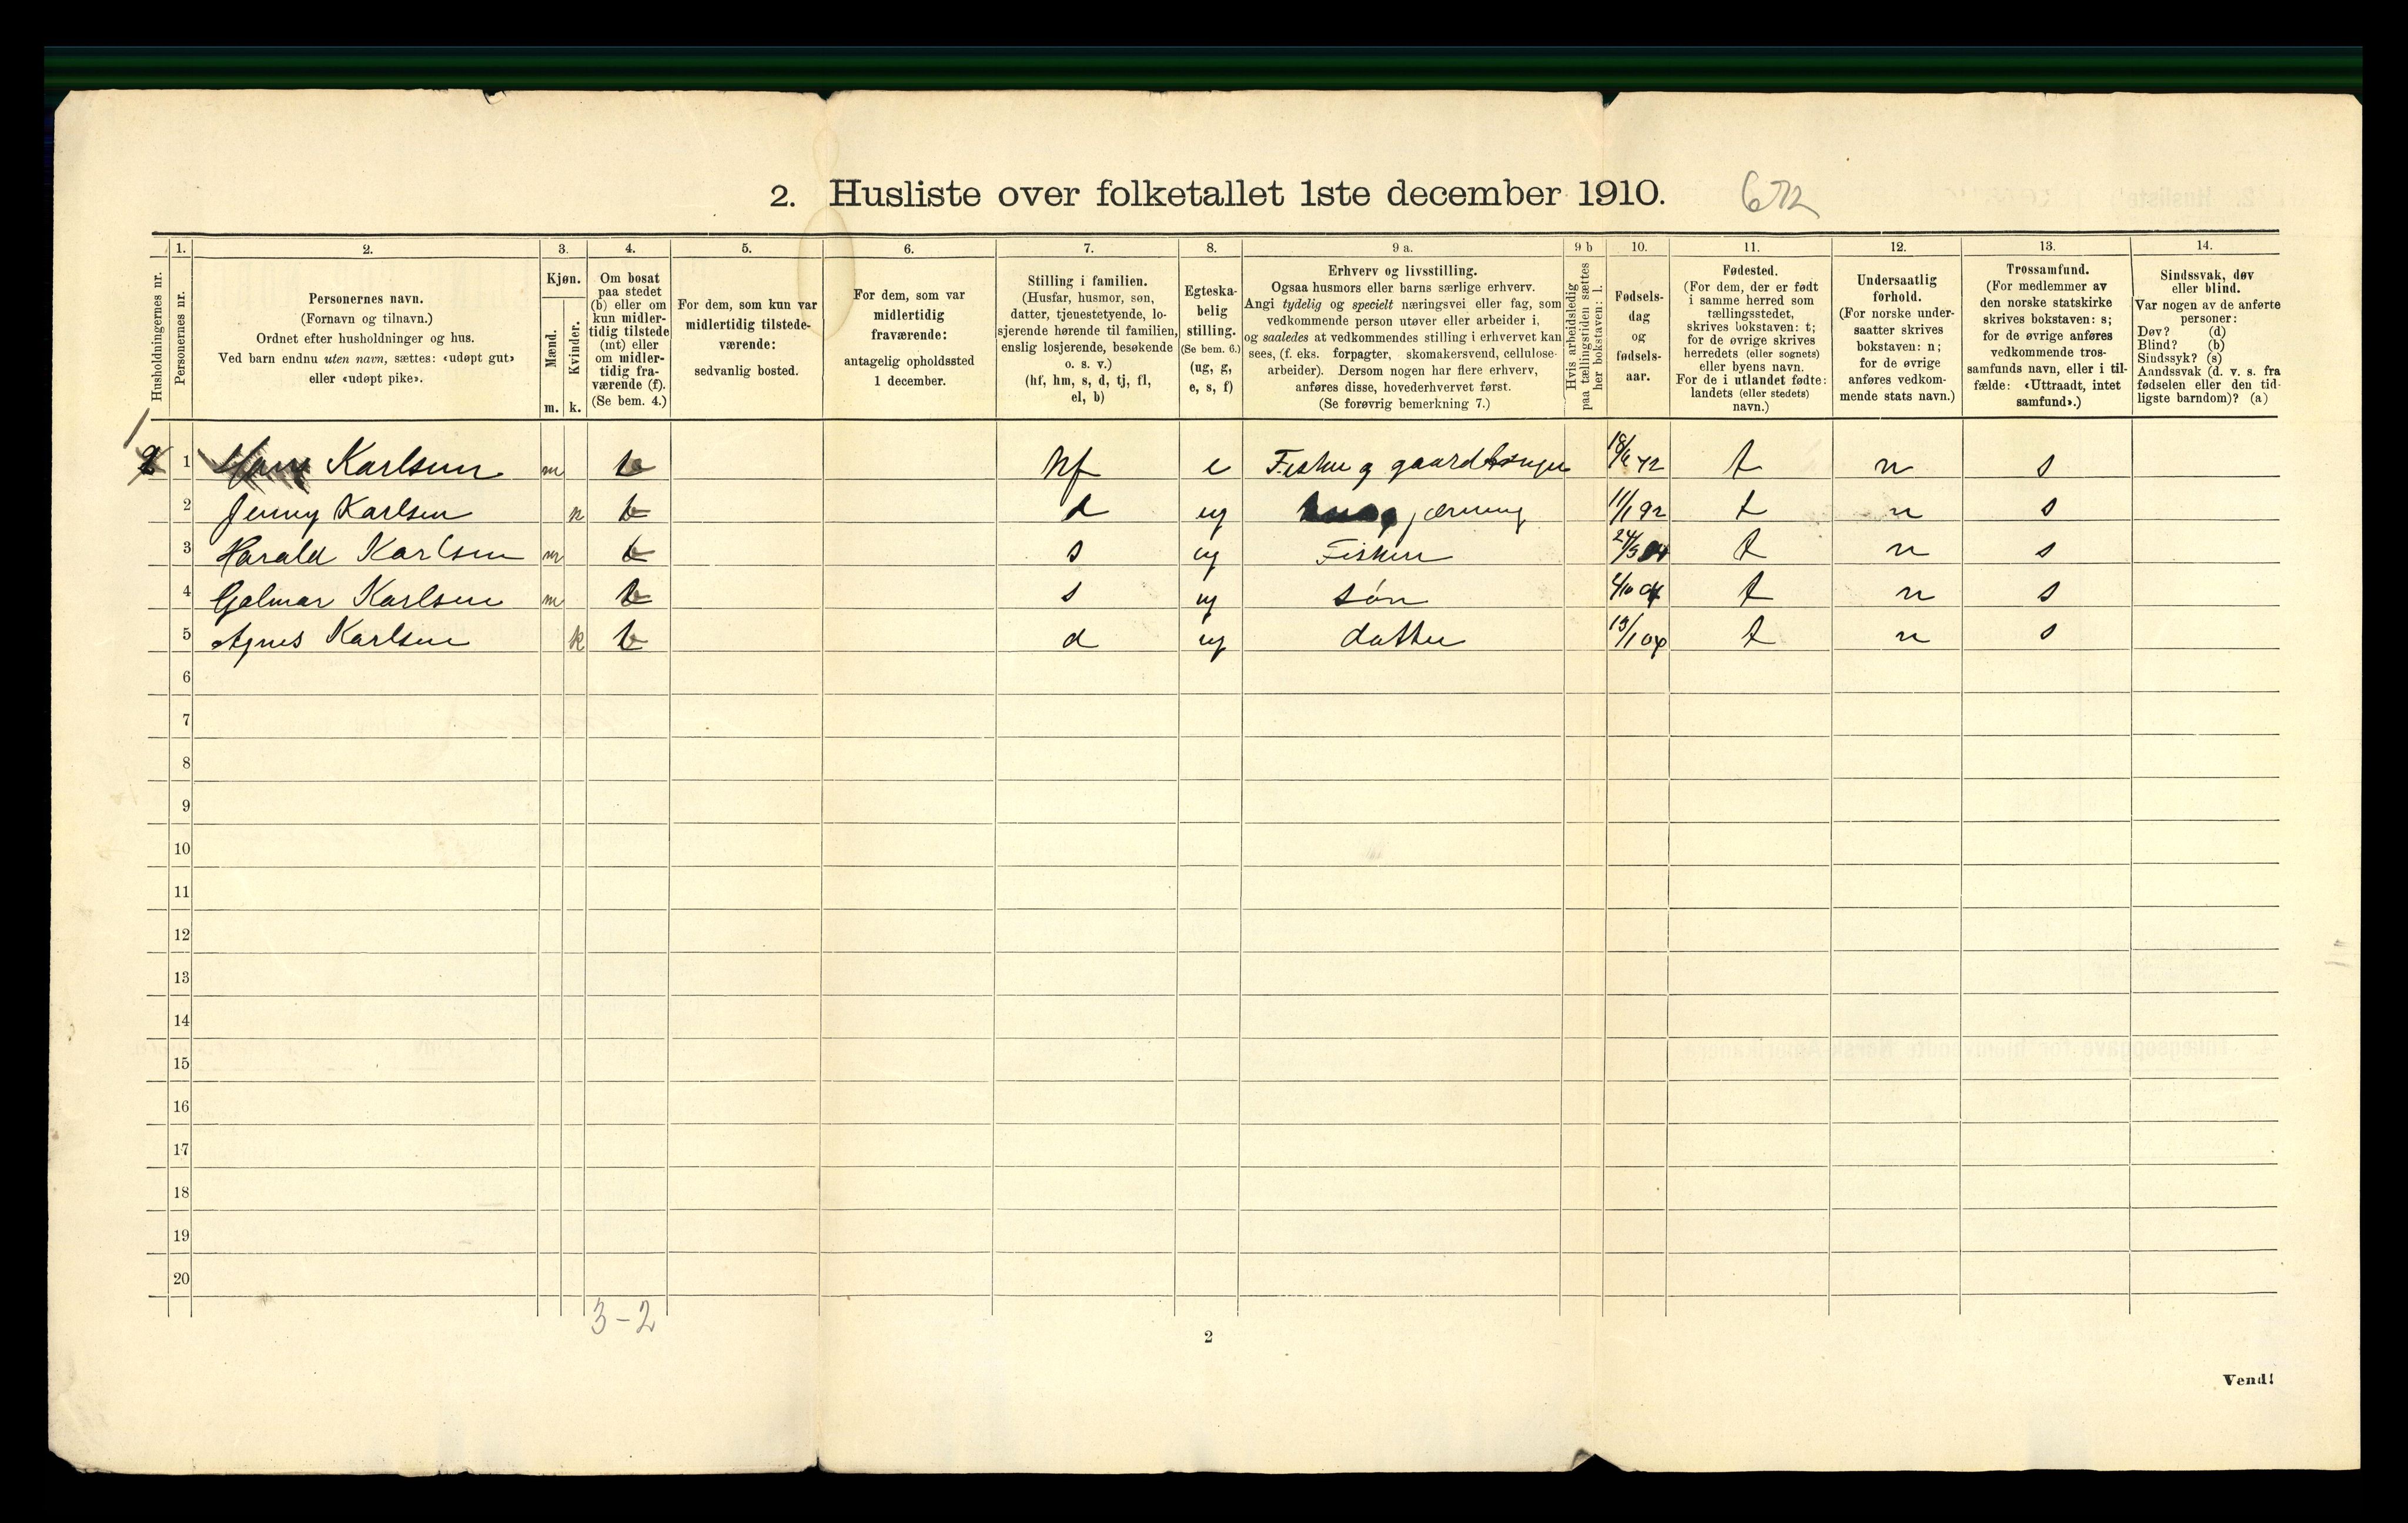 2. Husliste over folketallet 1ste december 1910. 672
Husholdningernes nr.
1. Personernes nr.
2. Personernes navn.
(Fornavn og tilnavn.)
Ordnet efter husholdninger og hus.
Ved barn endnu uten navn, sættes: «udøpt gut»
eller «udøpt pike».
3. Kjøn.
Mænd. m.
Kvinder. k.
4. Om bosat
paa stedet
(b) eller om
kun midler-
tidig tilstede
(mt) eller
om midler-
tidig fra-
værende (f).
(Se bem. 4.)
5. For dem, som kun var
midlertidig tilstede-
værende:
sedvanlig bosted.
6. For dem, som var
midlertidig
fraværende:
antagelig opholdssted
1 december.
7. Stilling i familien.
(Husfar, husmor, søn,
datter, tjenestetyende, lo-
sjerende hørende til familien,
enslig losjerende, besøkende
o. s. v.)
(hf, hm, s, d, tj, fl,
el, b)
8. Egteska-
belig
stilling.
(Se bem. 6.)
(ug, g,
e, s, f)
9 a. Erhverv og livsstilling.
Ogsaa husmors eller barns særlige erhverv.
Angi tydelig og specielt næringsvei eller fag, som
vedkommende person utøver eller arbeider i,
og saaledes at vedkommendes stilling i erhvervet kan
sees, (f. eks. forpagter, skomakersvend, cellulose-
arbeider). Dersom nogen har flere erhverv,
anføres disse, hovederhvervet først.
(Se forøvrig bemerkning 7.)
9 b Hvis arbeidsledig
paa tællingstiden sættes
her bokstaven: l.
10. Fødsels-
dag
og
fødsels-
aar.
11. Fødested.
(For dem, der er født
i samme herred som
tællingsstedet,
skrives bokstaven: t;
for de øvrige skrives
herredets (eller sognets)
eller byens navn.
For de i utlandet fødte:
landets (eller stedets)
navn.)
12. Undersaatlig
forhold.
(For norske under-
saatter skrives
bokstaven: n;
for de øvrige
anføres vedkom-
mende stats navn.)
13. Trossamfund.
(For medlemmer av
den norske statskirke
skrives bokstaven: s;
for de øvrige anføres
vedkommende tros-
samfunds navn, eller i til-
fælde: «Uttraadt, intet
samfund».)
14. Sindssvak, døv
eller blind.
Var nogen av de anførte
personer:
Døv? (d)
Blind? (b)
Sindssyk? (s)
Aandssvak (d. v. s. fra
fødselen eller den tid-
ligste barndom)? (a)
1 1 Karlsen m b hf e Fisker og 18/6 72 t n s
2 Jenny Karlsen k b d ug 11/1 92 t n s
3 Harald Karlsen m b s ug Fisker t n s
4 Karlsen m b s ug søn 4/10 04 t n s
5 Agnes Karlsen k b d ug datter t n s
6
7
8
9
10
11
12
13
14
15
16
17
18
19
20
3-2
2
Vend!